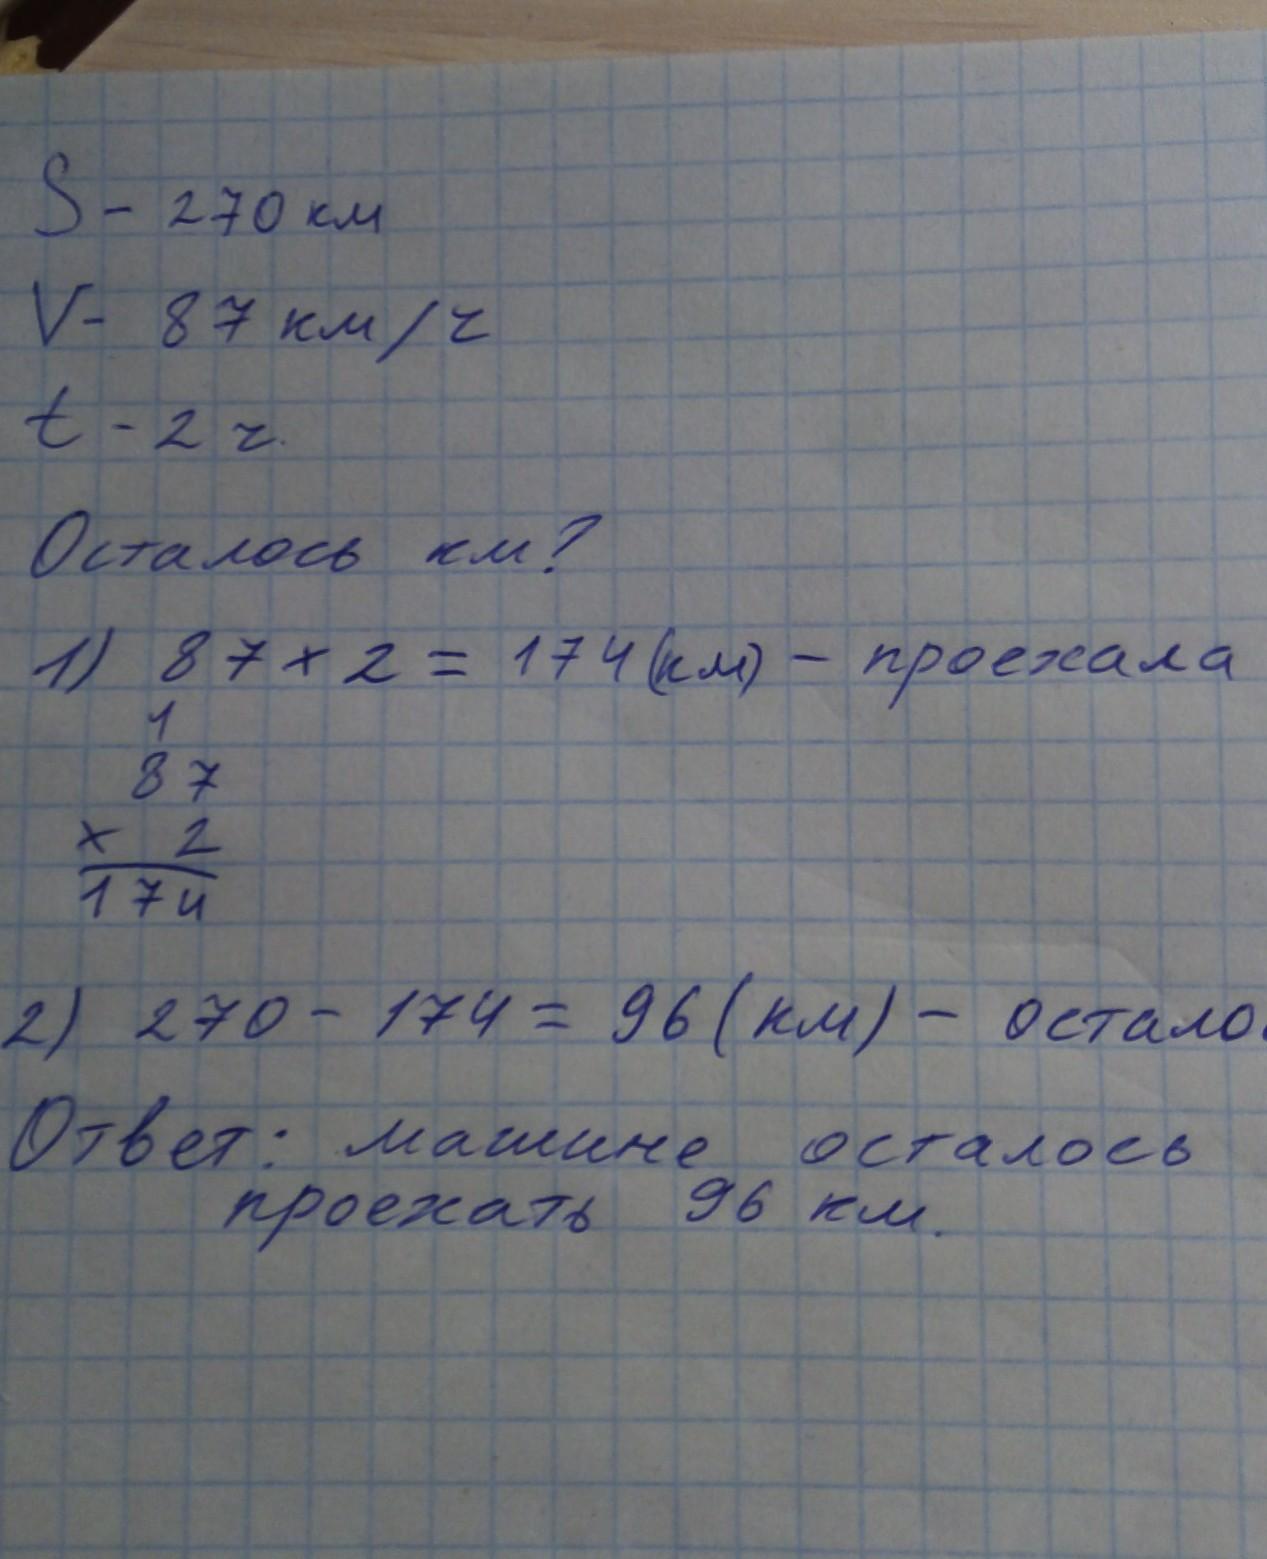 S - 270 км
V - 87 км/ч
t - 2 ч.
Осталось км?
1) 87 × 2 = 174 (км) - проехала
1
87
× 2
174
2) 270 - 174 = 96 (км) - остало
Ответ: машине осталось
проехать 96 км.